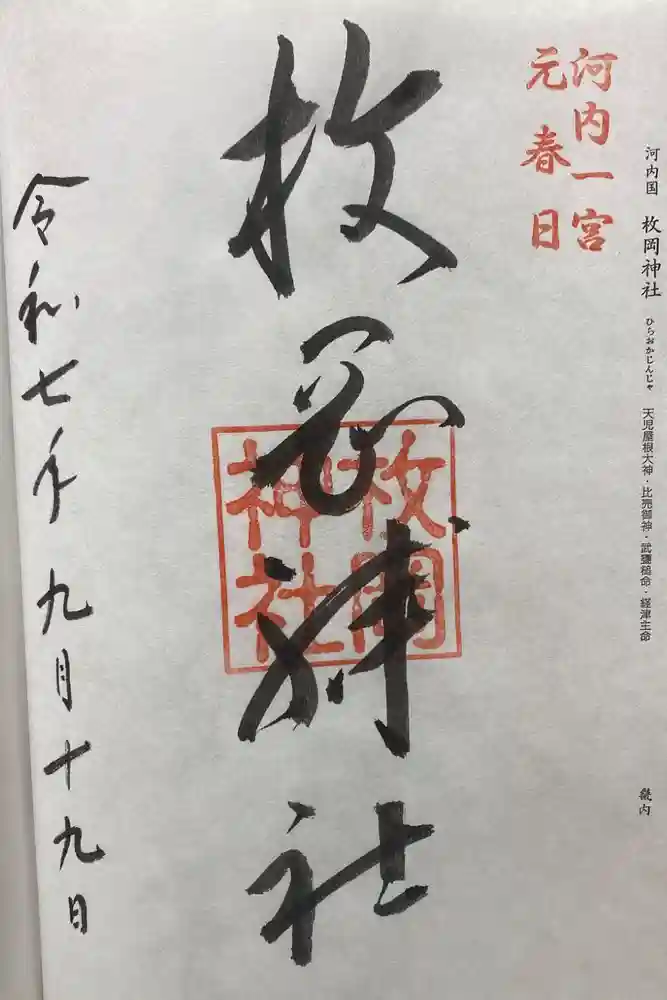 河内国 枚岡神社 ひらおかじんじゃ 天児屋根大神・比売御神・武甕槌命・経津主命 畿内
河内一宮
元春日
枚岡神社
枚岡
神社
令和七年九月十九日